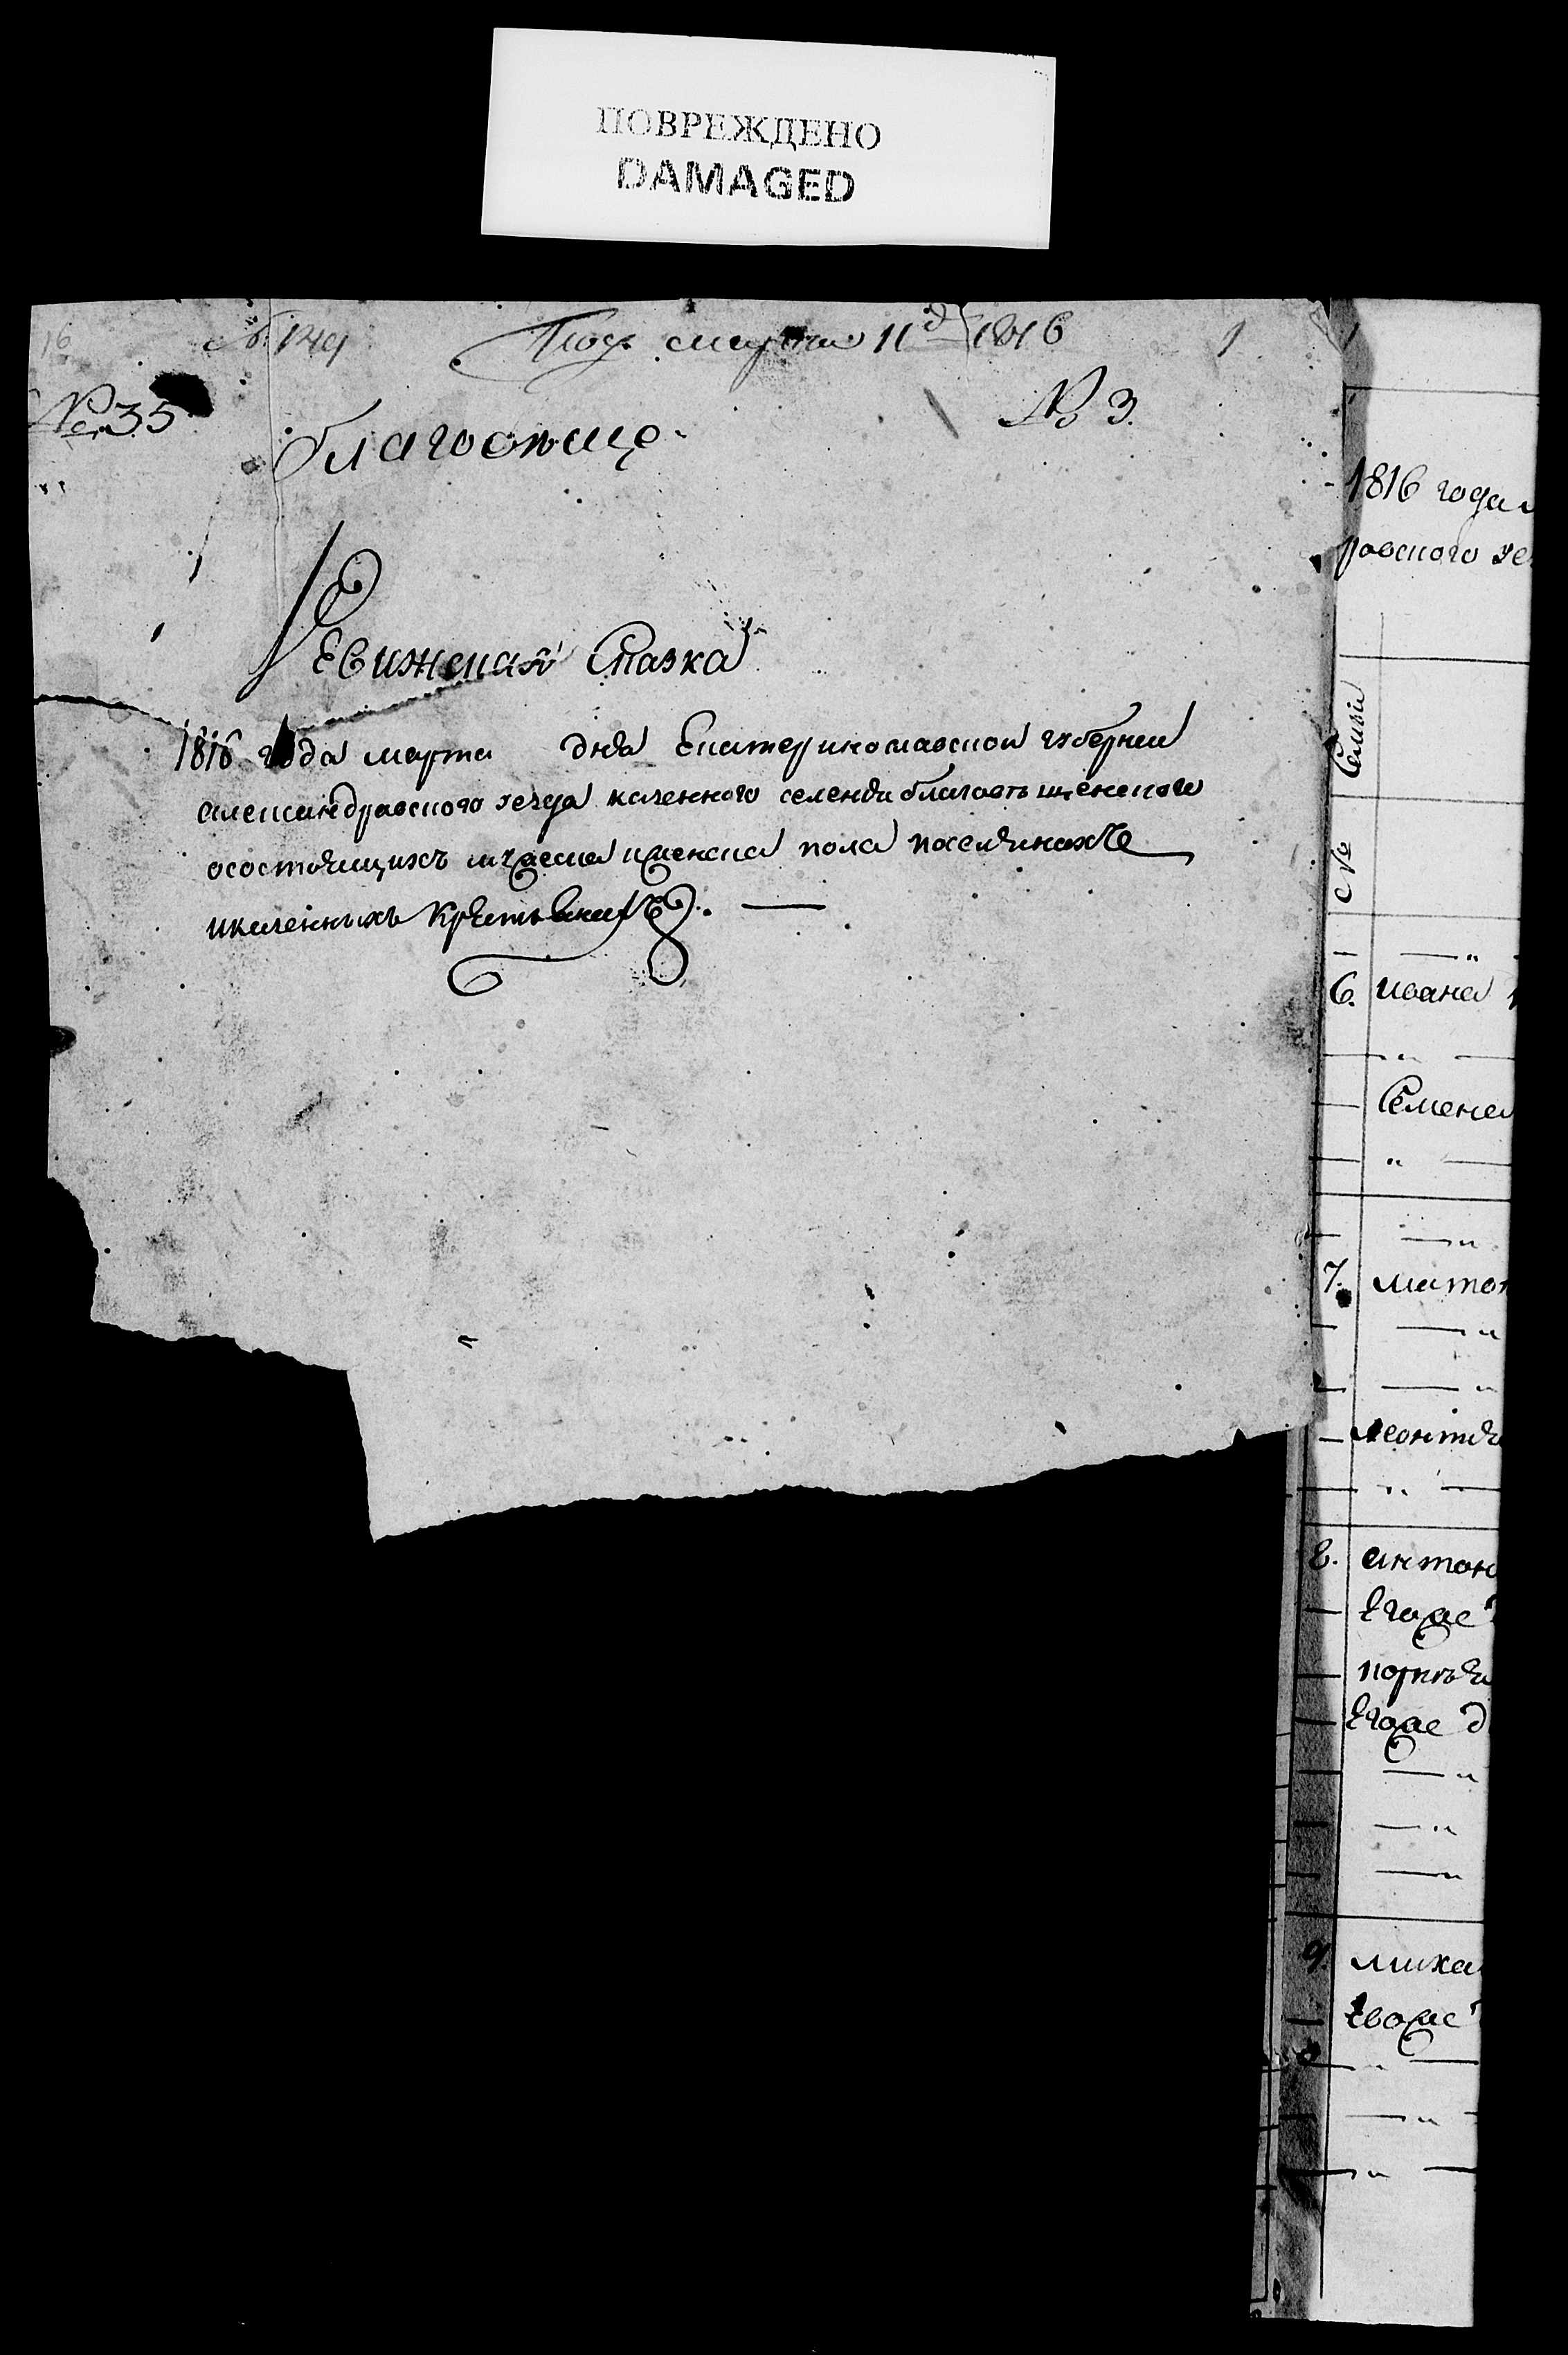 ПОВРЕЖДЕНО
DAMAGED
16
№ 149
Под. марта 11д 1816
1
№ 35
№ 3.
благовѣще
Ревижская Сказка
1816 года марта дня Екатеринославской губернии
александравского уезда казенного селения благовѣщенского
осостоящихъ мужеска и женска пола поселянахъ
иказенныхъ
1816 года
равского уе
Семьи
6. ивана
Семена
7.
леонтия
8. антон
Егоре
Егоре д
9. миха